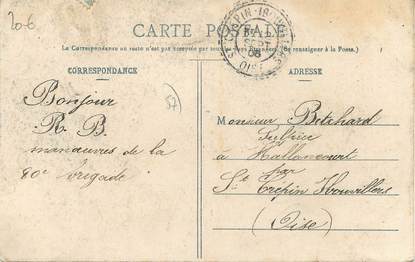 20-6
CARTE POSTALE
La Correspondance au recto n'est pas acceptée par tous les pays Étrangers. (Se renseigner à la Poste.)
CORRESPONDANCE
ADRESSE
57
Bonjour
R. B.
manœuvres de la
80e brigade
Monsieur Betchard
Sulpice
à Hallancourt
par
St Crépin Ibouvillers
(Oise)